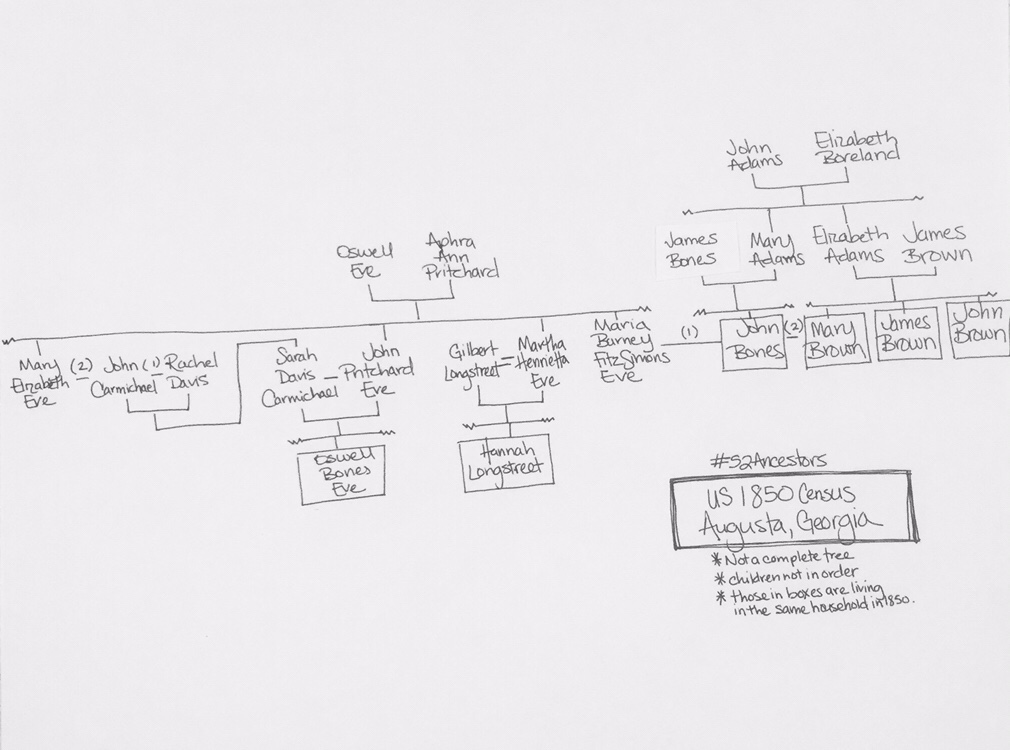 John
Adams
Elizabeth
Boreland
James
Bones
Mary
Adams
Elizabeth
Adams
James
Brown
Oswell
Eve
Aphra
Ann
Pritchard
Mary
Elizabeth
Eve
(2)
John
Carmichael
(1)
Rachel
Davis
Sarah
Davis
Carmichael
John
Pritchard
Eve
Gilbert
Longstreet
Martha
Henrietta
Eve
Maria
Burney
FitzSimons
Eve
(1)
John
Bones
(2)
Mary
Brown
James
Brown
John
Brown
Oswell
Bones
Eve
Hannah
Longstreet
#52Ancestors
US 1850 Census
Augusta, Georgia
* Not a complete tree
* children not in order
* those in boxes are living
in the same household in 1850.